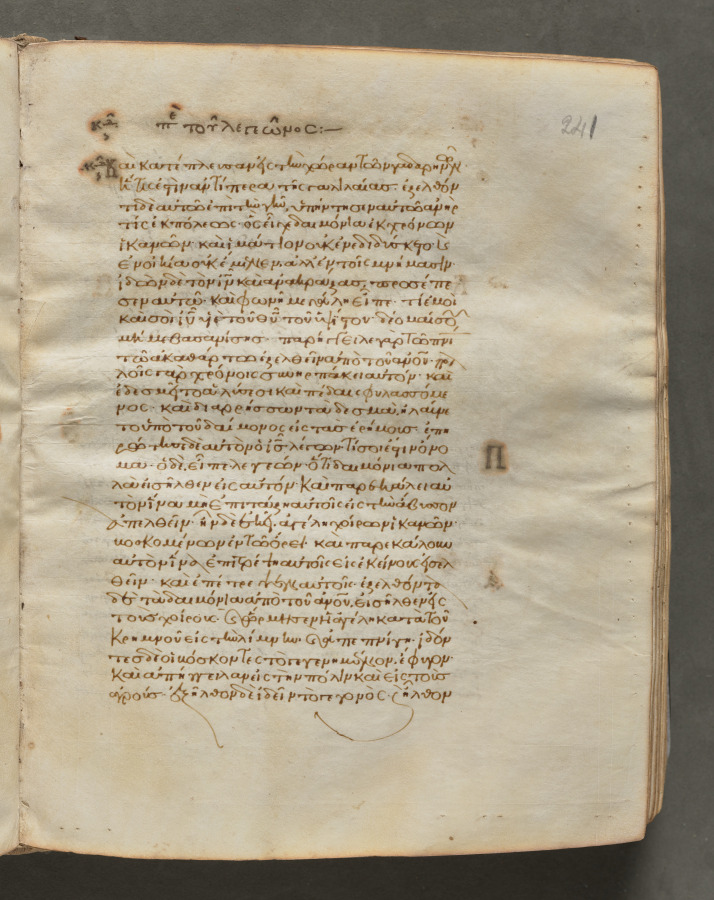 241
κϛ πε τοῦ λεγεῶνος:—
Καὶ κατέπλευσαν εἰς τὴν χώραν τῶν γαδαρηνῶν
ἥτις ἐστὶν ἀντίπερα τῆς γαλιλαίας. ἐξελθόν
τι δὲ αὐτῷ ἐπὶ τὴν γῆν, ὑπήντησεν αὐτῷ ἀνήρ
τις ἐκ πόλεως· ὃς εἶχε δαιμόνια ἐκ χρόνων
ἱκανῶν· καὶ ἱμάτιον οὐκ ἐνεδιδύσκετο· καὶ
ἐν οἰκία οὐκ ἔμενεν. ἀλλ' ἐν τοῖς μνήμασιν·
ἰδὼν δὲ τὸν ιν καὶ ἀνακράξας, προσέπε
σεν αὐτῷ· καὶ φωνῇ μεγάλη εἶπε· τί ἐμοὶ
καὶ σοὶ ιυ υιὲ τοῦ θυ τοῦ ὑψίστου· δέομαί σου
μή με βασανίσης· παρήγγειλε γὰρ τῷ πνι
τῷ ἀκαθάρτω ἐξελθεῖν ἀπὸ τοῦ ανου· πολ
λοῖς γὰρ χρόνοις συνηρπάκει αὐτόν· καὶ
ἐδεσμεῖτο ἁλύσεσι καὶ πέδαις φυλασσόμε
νος· καὶ διαρρήσσων τὰ δεσμὰ, ἠλαύνε
το ὑπὸ τοῦ δαίμονος εἰς τὰς ἐρήμους. ἐπη
ρώτησε δὲ αὐτὸν ὁ ις λέγων· τί σοι ἐστὶν ὄνο
μα· ὁ δὲ, εἶπε λεγεών· ὅτι δαιμόνια πολ
λὰ εἰσῆλθεν εἰς αὐτόν· καὶ παρεκάλει αὐ
τὸν ἵνα μὴ ἐπιτάξη αὐτοῖς εἰς τὴν ἄβυσσον
ἀπελθεῖν· ἦν δὲ ἐκεῖ ἀγέλη χοίρων ἱκανῶν·
βοσκομένων ἐν τῷ ὄρει· καὶ παρεκάλουν
αὐτὸν ἵνα ἐπιτρέψη αὐτοῖς εἰς ἐκείνους εἰσελ
θεῖν· καὶ ἐπέτρεψεν αὐτοῖς· ἐξελθόντα
δὲ τὰ δαιμόνια ἀπὸ τοῦ ανου, εἰσῆλθεν εἰς
τοὺς χοίρους· καὶ ὥρμησεν ἡ ἀγέλη κατὰ τοῦ
κρημνοῦ εἰς τὴν λίμνην· καὶ ἀπεπνίγη· ἰδόν
τες δὲ οἱ βόσκοντες τὸ γεγενημένον, ἔφυγον·
καὶ ἀπήγγειλαν εἰς τὴν πόλιν καὶ εἰς τοὺς
ἀγρούς· ἐξῆλθον δὲ ἰδεῖν τὸ γεγονός· καὶ ἦλθον
Π